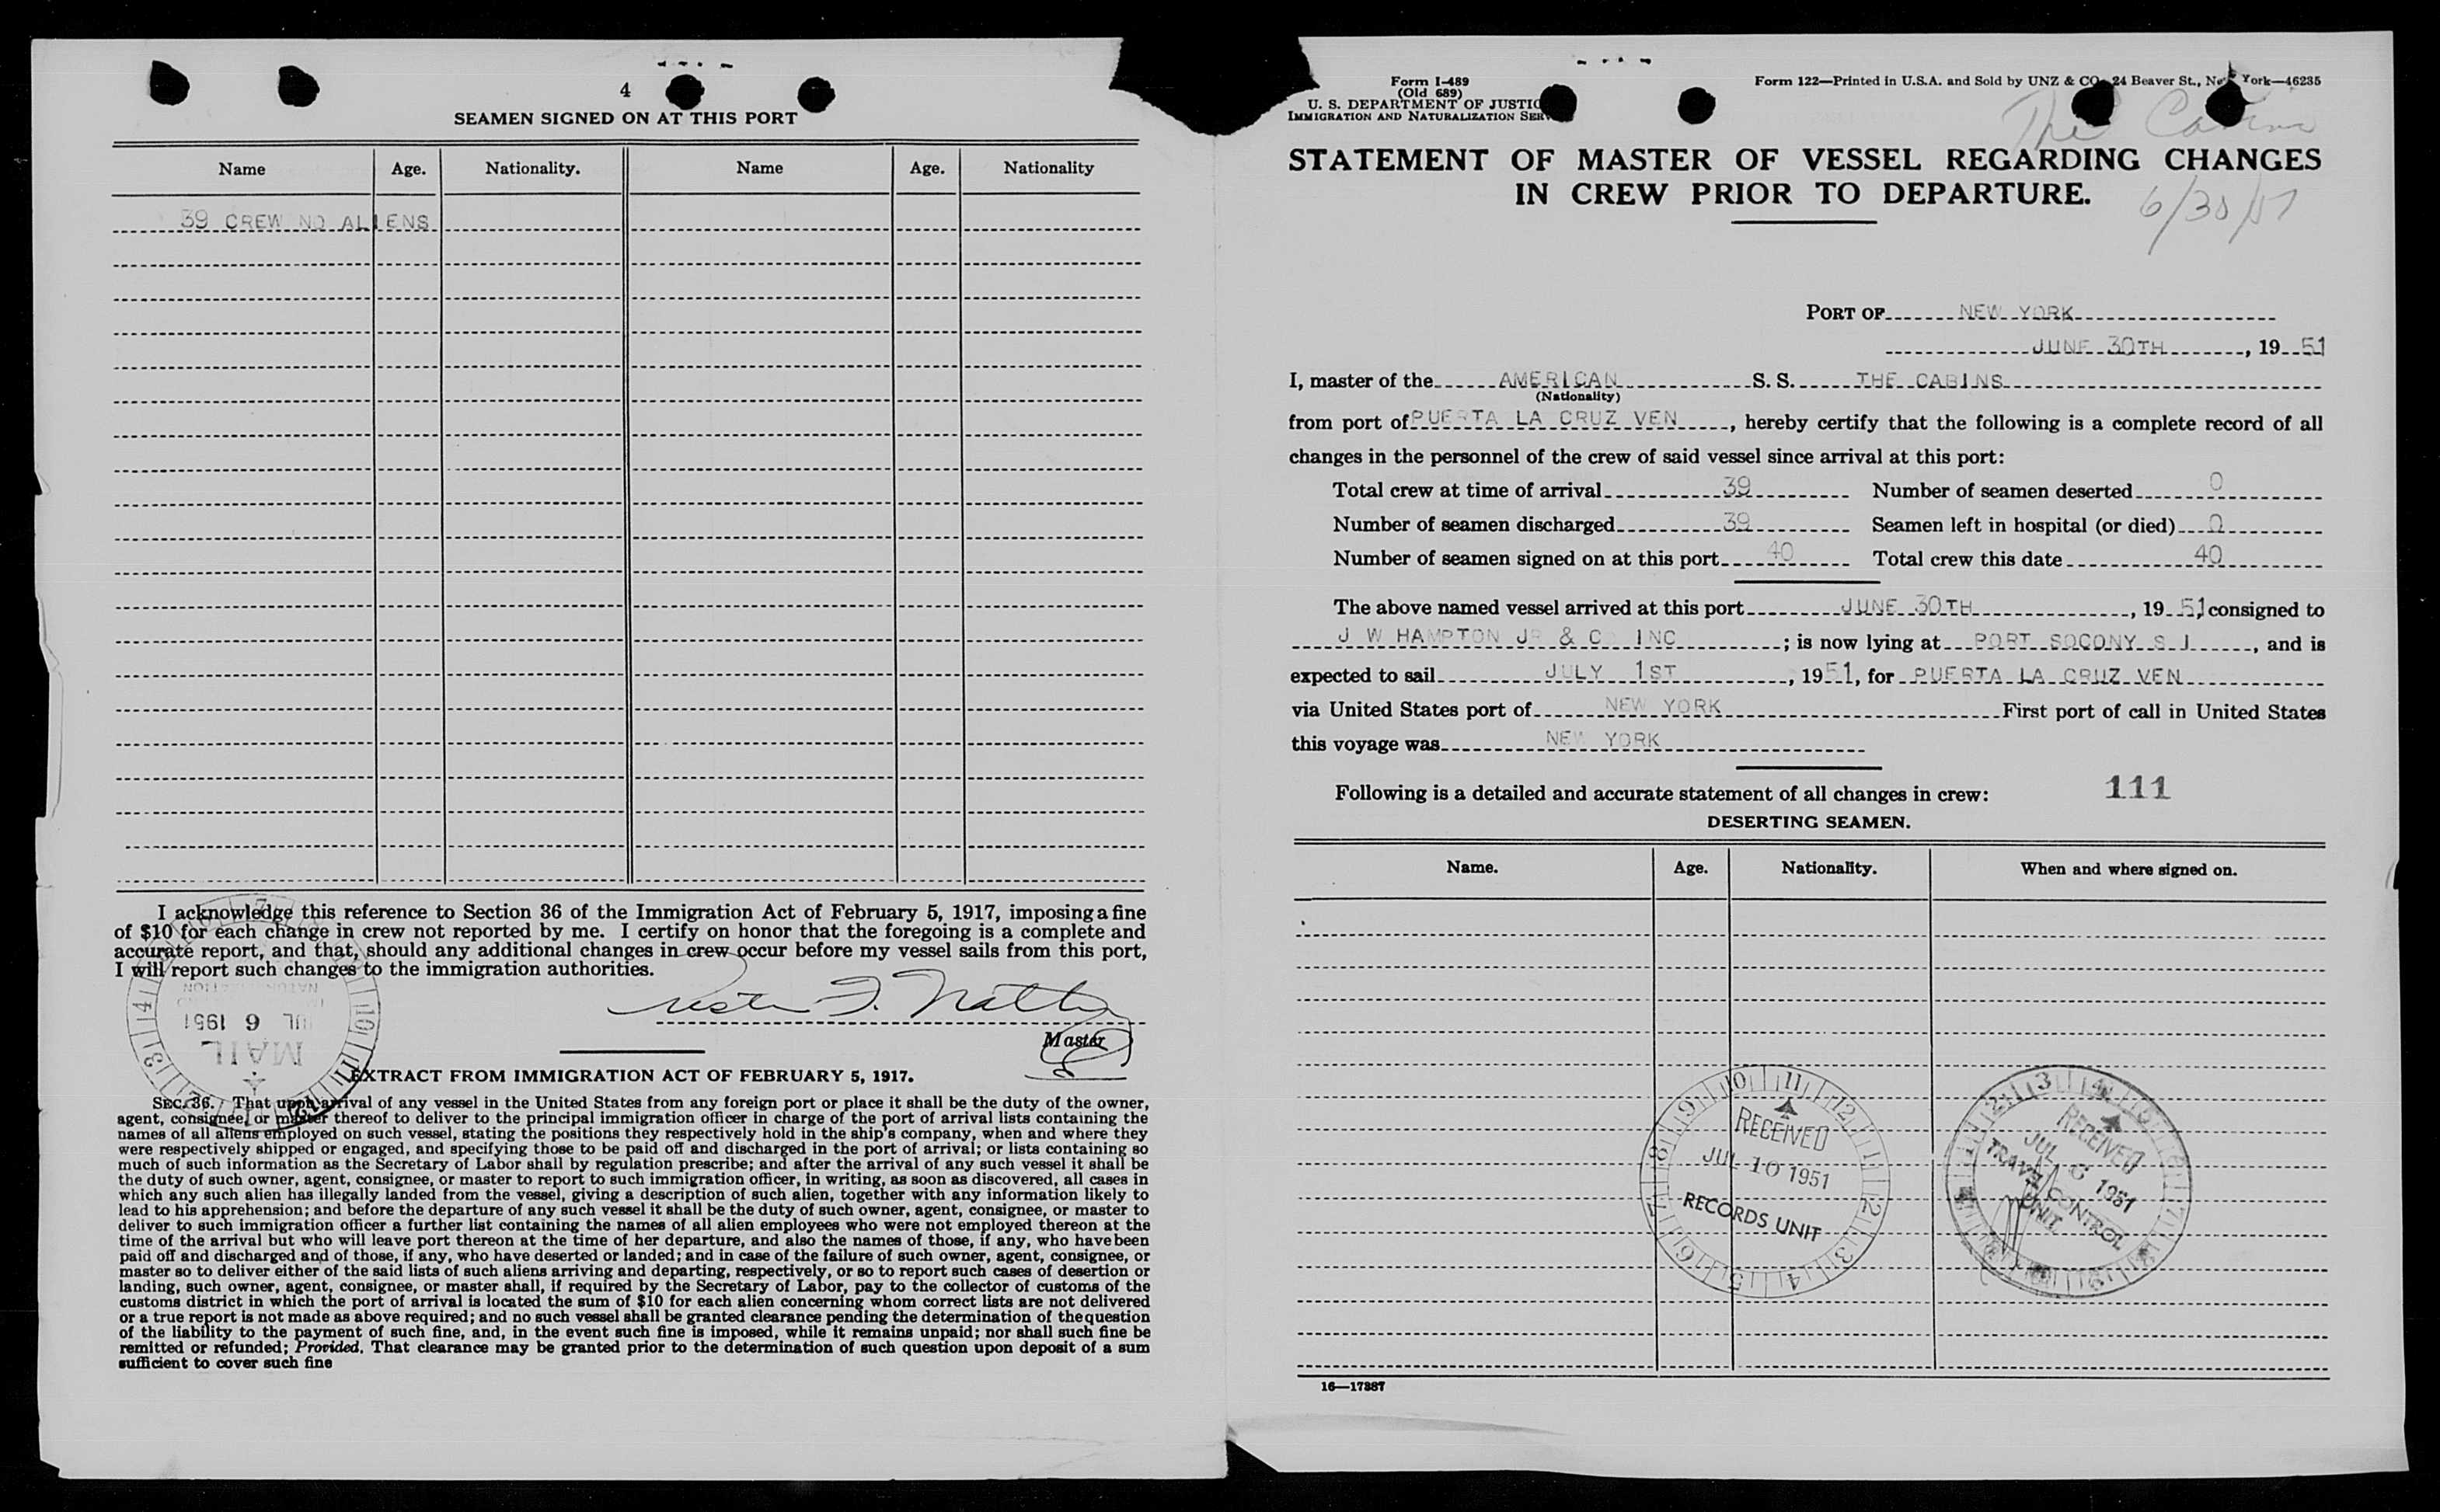 4
SEAMEN SIGNED ON AT THIS PORT
Name Age. Nationality. Name Age. Nationality
39 CREW NO ALIENS
I acknowledge this reference to Section 36 of the Immigration Act of February 5, 1917, imposing a fine
of $10 for each change in crew not reported by me. I certify on honor that the foregoing is a complete and
accurate report, and that, should any additional changes in crew occur before my vessel sails from this port,
I will report such changes to the immigration authorities.
Master
JUL 6 1951
MAIL
EXTRACT FROM IMMIGRATION ACT OF FEBRUARY 5, 1917.
SEC. 36. That upon arrival of any vessel in the United States from any foreign port or place it shall be the duty of the owner,
agent, consignee, or master thereof to deliver to the principal immigration officer in charge of the port of arrival lists containing the
names of all aliens employed on such vessel, stating the positions they respectively hold in the ship's company, when and where they
were respectively shipped or engaged, and specifying those to be paid off and discharged in the port of arrival; or lists containing so
much of such information as the Secretary of Labor shall by regulation prescribe; and after the arrival of any such vessel it shall be
the duty of such owner, agent, consignee, or master to report to such immigration officer, in writing, as soon as discovered, all cases in
which any such alien has illegally landed from the vessel, giving a description of such alien, together with any information likely to
lead to his apprehension; and before the departure of any such vessel it shall be the duty of such owner, agent, consignee, or master to
deliver to such immigration officer a further list containing the names of all alien employees who were not employed thereon at the
time of the arrival but who will leave port thereon at the time of her departure, and also the names of those, if any, who have been
paid off and discharged and of those, if any, who have deserted or landed; and in case of the failure of such owner, agent, consignee, or
master so to deliver either of the said lists of such aliens arriving and departing, respectively, or so to report such cases of desertion or
landing, such owner, agent, consignee, or master shall, if required by the Secretary of Labor, pay to the collector of customs of the
customs district in which the port of arrival is located the sum of $10 for each alien concerning whom correct lists are not delivered
or a true report is not made as above required; and no such vessel shall be granted clearance pending the determination of the question
of the liability to the payment of such fine, and, in the event such fine is imposed, while it remains unpaid; nor shall such fine be
remitted or refunded; Provided, That clearance may be granted prior to the determination of such question upon deposit of a sum
sufficient to cover such fine
Form I-489
(Old 689)
U. S. DEPARTMENT OF JUSTIC
IMMIGRATION AND NATURALIZATION SERV
Form 122—Printed in U.S.A. and Sold by UNZ & CO. 24 Beaver St., New York—46235
The Cabins
STATEMENT OF MASTER OF VESSEL REGARDING CHANGES
IN CREW PRIOR TO DEPARTURE.
6/30/51
PORT OF NEW YORK
JUNE 30TH, 19 51
I, master of the AMERICAN S. S. THE CABINS
(Nationality)
from port of PUERTA LA CRUZ VEN, hereby certify that the following is a complete record of all
changes in the personnel of the crew of said vessel since arrival at this port:
Total crew at time of arrival 39 Number of seamen deserted 0
Number of seamen discharged 39 Seamen left in hospital (or died) 0
Number of seamen signed on at this port 40 Total crew this date 40
The above named vessel arrived at this port JUNE 30TH, 19 51 consigned to
J W HAMPTON JR & CO INC; is now lying at PORT SOCONY S I, and is
expected to sail JULY 1ST, 19 51, for PUERTA LA CRUZ VEN
via United States port of NEW YORK First port of call in United States
this voyage was NEW YORK
Following is a detailed and accurate statement of all changes in crew: 111
DESERTING SEAMEN.
Name. Age. Nationality. When and where signed on.
RECEIVED
JUL 10 1951
RECORDS UNIT
RECEIVED
JUL 6 1951
TRAVEL CONTROL
UNIT
16—17887